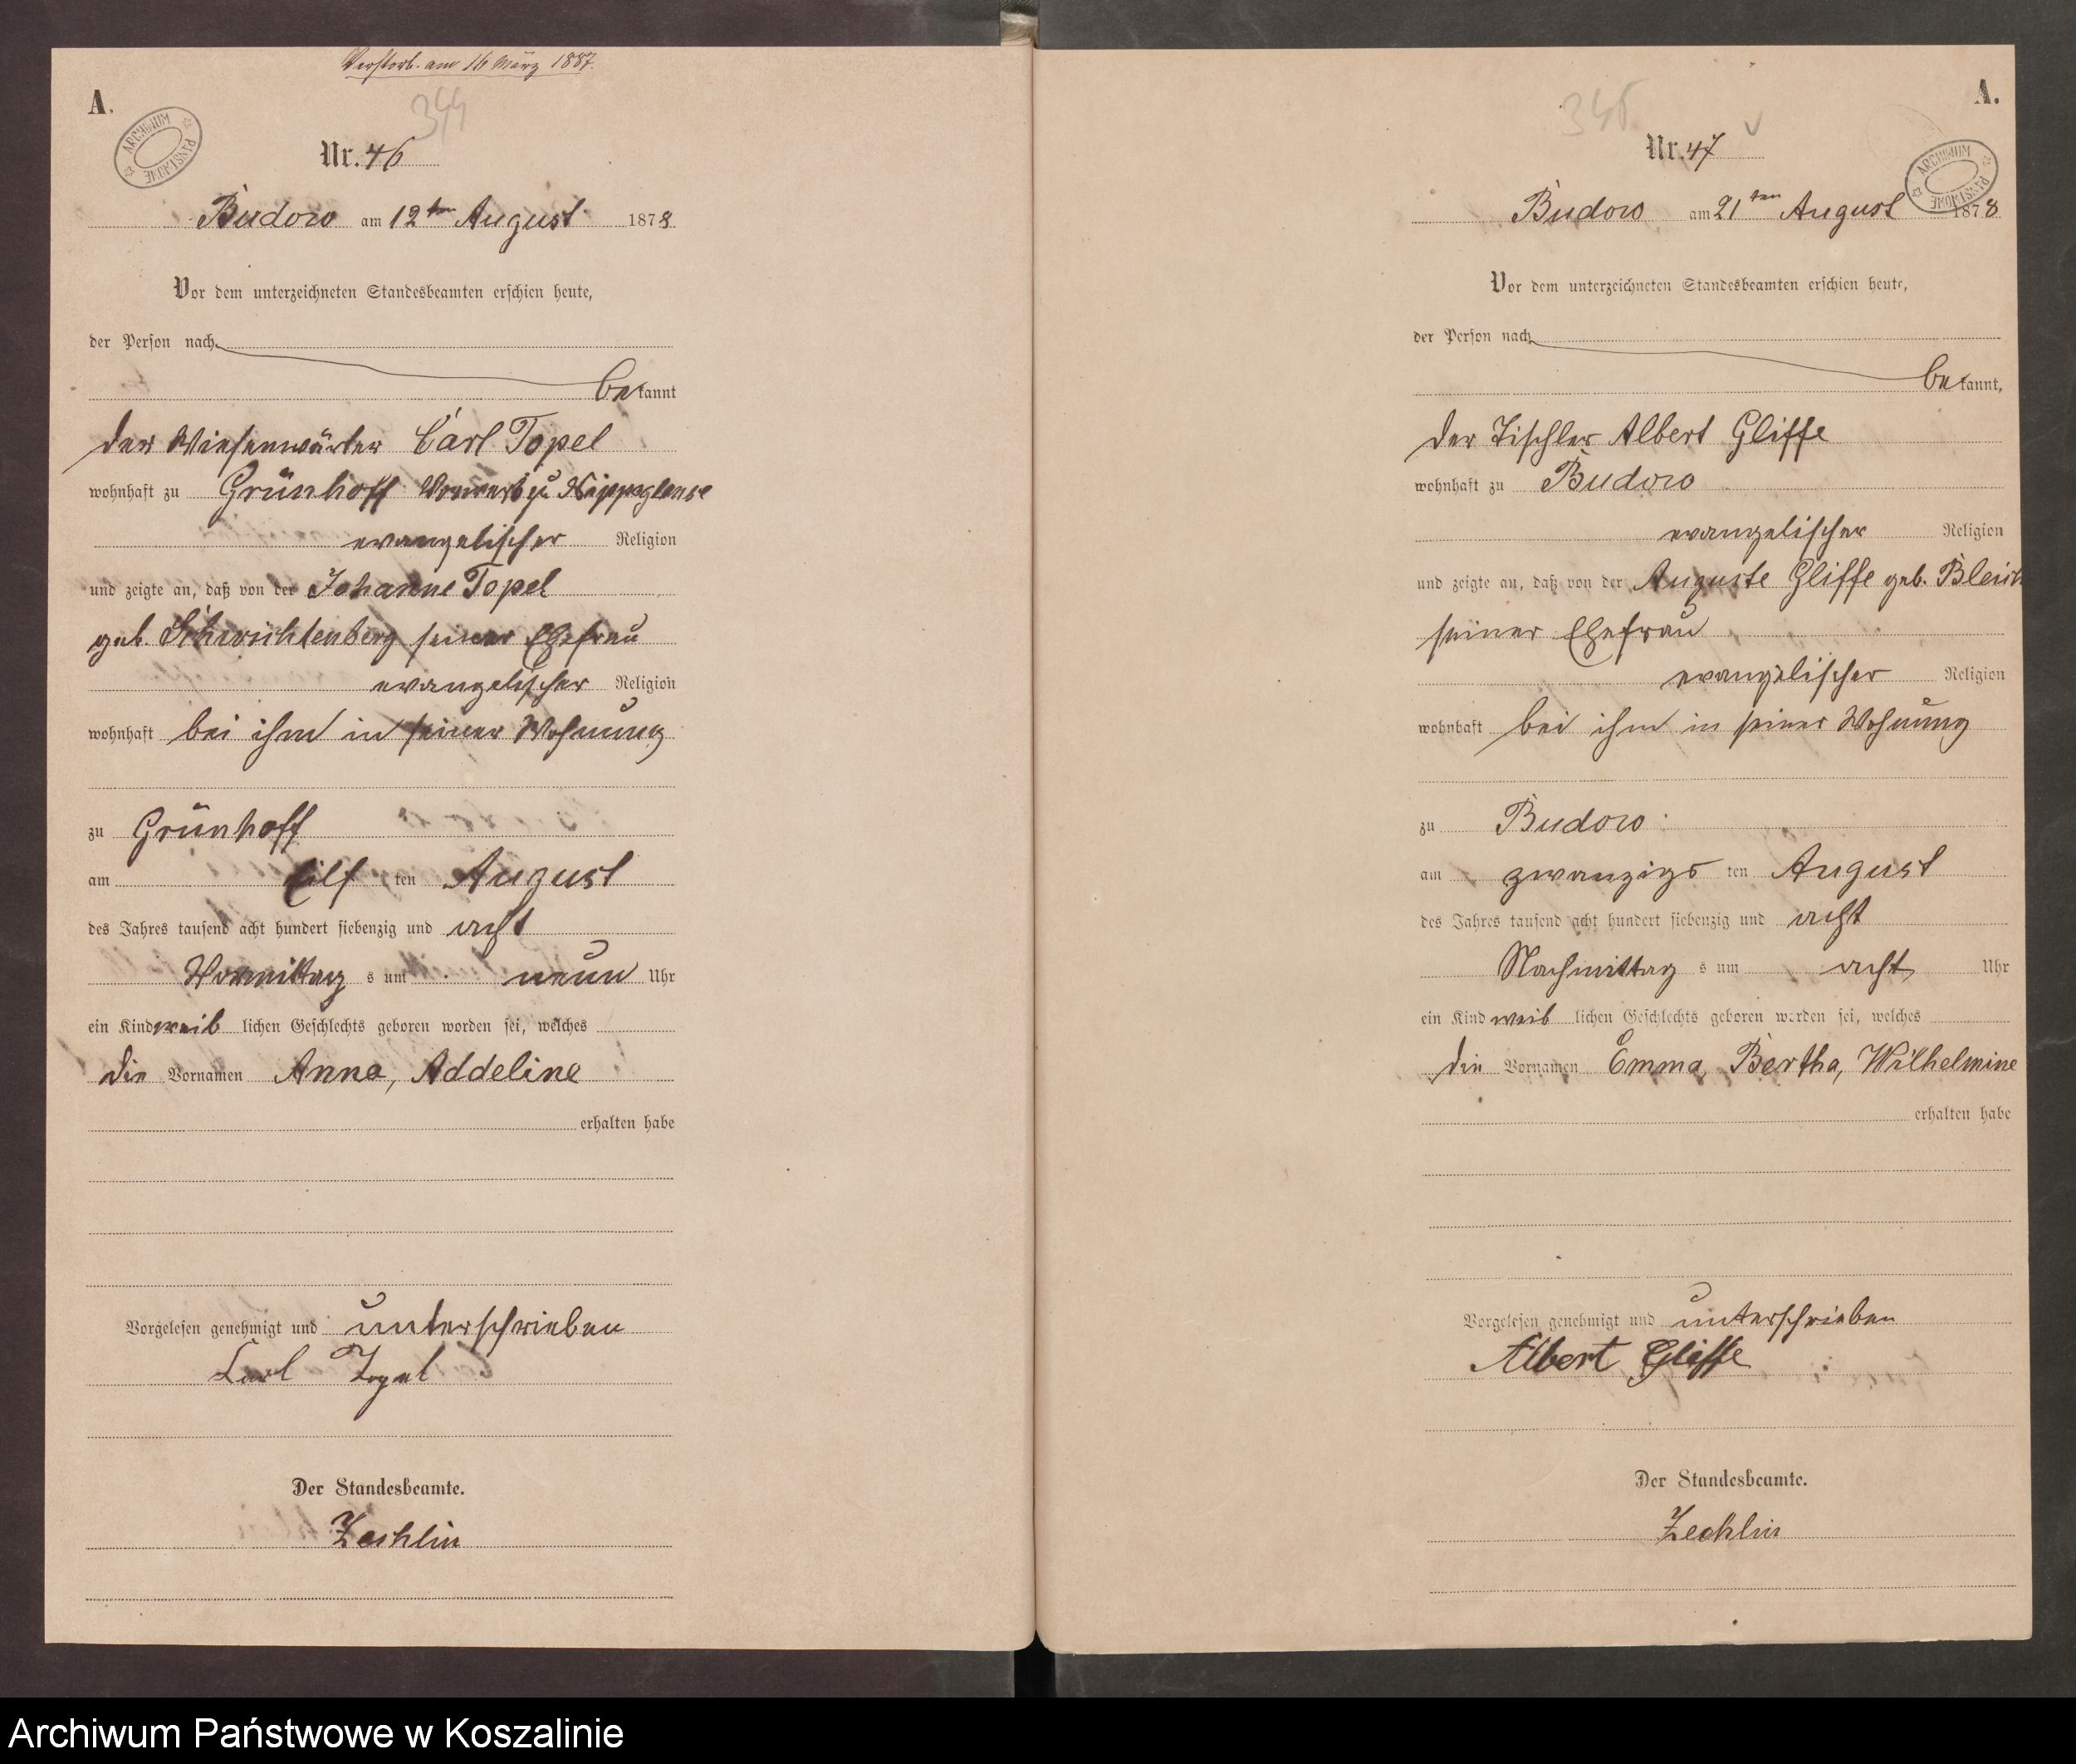 Verstorb. am 16 März 1887.
A.
344
ARCHIWUM PAŃSTWOWE
Nr. 46
Budow am 12ten August 1878
Vor dem unterzeichneten Standesbeamten erschien heute,
der Person nach
bekannt
der Wiesenwärter Carl Topel
wohnhaft zu Grünhoff Vorwerk zu Nippoglense
evangelischer Religion
und zeigte an, daß von der Johanne Topel
geb. Schwichtenberg seiner Ehefrau
evangelischer Religion
wohnhaft bei ihm in seiner Wohnung
zu Grünhoff
am Eilf ten August
des Jahres tausend acht hundert siebenzig und acht
Vormittag s um neun Uhr
ein Kind weib lichen Geschlechts geboren worden sei, welches
die Vornamen Anna, Addeline
erhalten habe
Vorgelesen genehmigt und unterschrieben
Carl Topel
Der Standesbeamte.
Zechlin
A.
345
ARCHIWUM PAŃSTWOWE
Nr. 47
Budow am 21ten August 1878
Vor dem unterzeichneten Standesbeamten erschien heute,
der Person nach
bekannt,
der Tischler Albert Gliffe
wohnhaft zu Budow
evangelischer Religion
und zeigte an, daß von der Auguste Gliffe geb. Bleich
seiner Ehefrau
evangelischer Religion
wohnhaft bei ihm in seiner Wohnung
zu Budow
am zwanzigs ten August
des Jahres tausend acht hundert siebenzig und acht
Nachmittag s um acht Uhr
ein Kind weib lichen Geschlechts geboren worden sei, welches
die Vornamen Emma, Bertha, Wilhelmine
erhalten habe
Vorgelesen genehmigt und unterschrieben
Albert Gliffe
Der Standesbeamte.
Zechlin
Archiwum Państwowe w Koszalinie